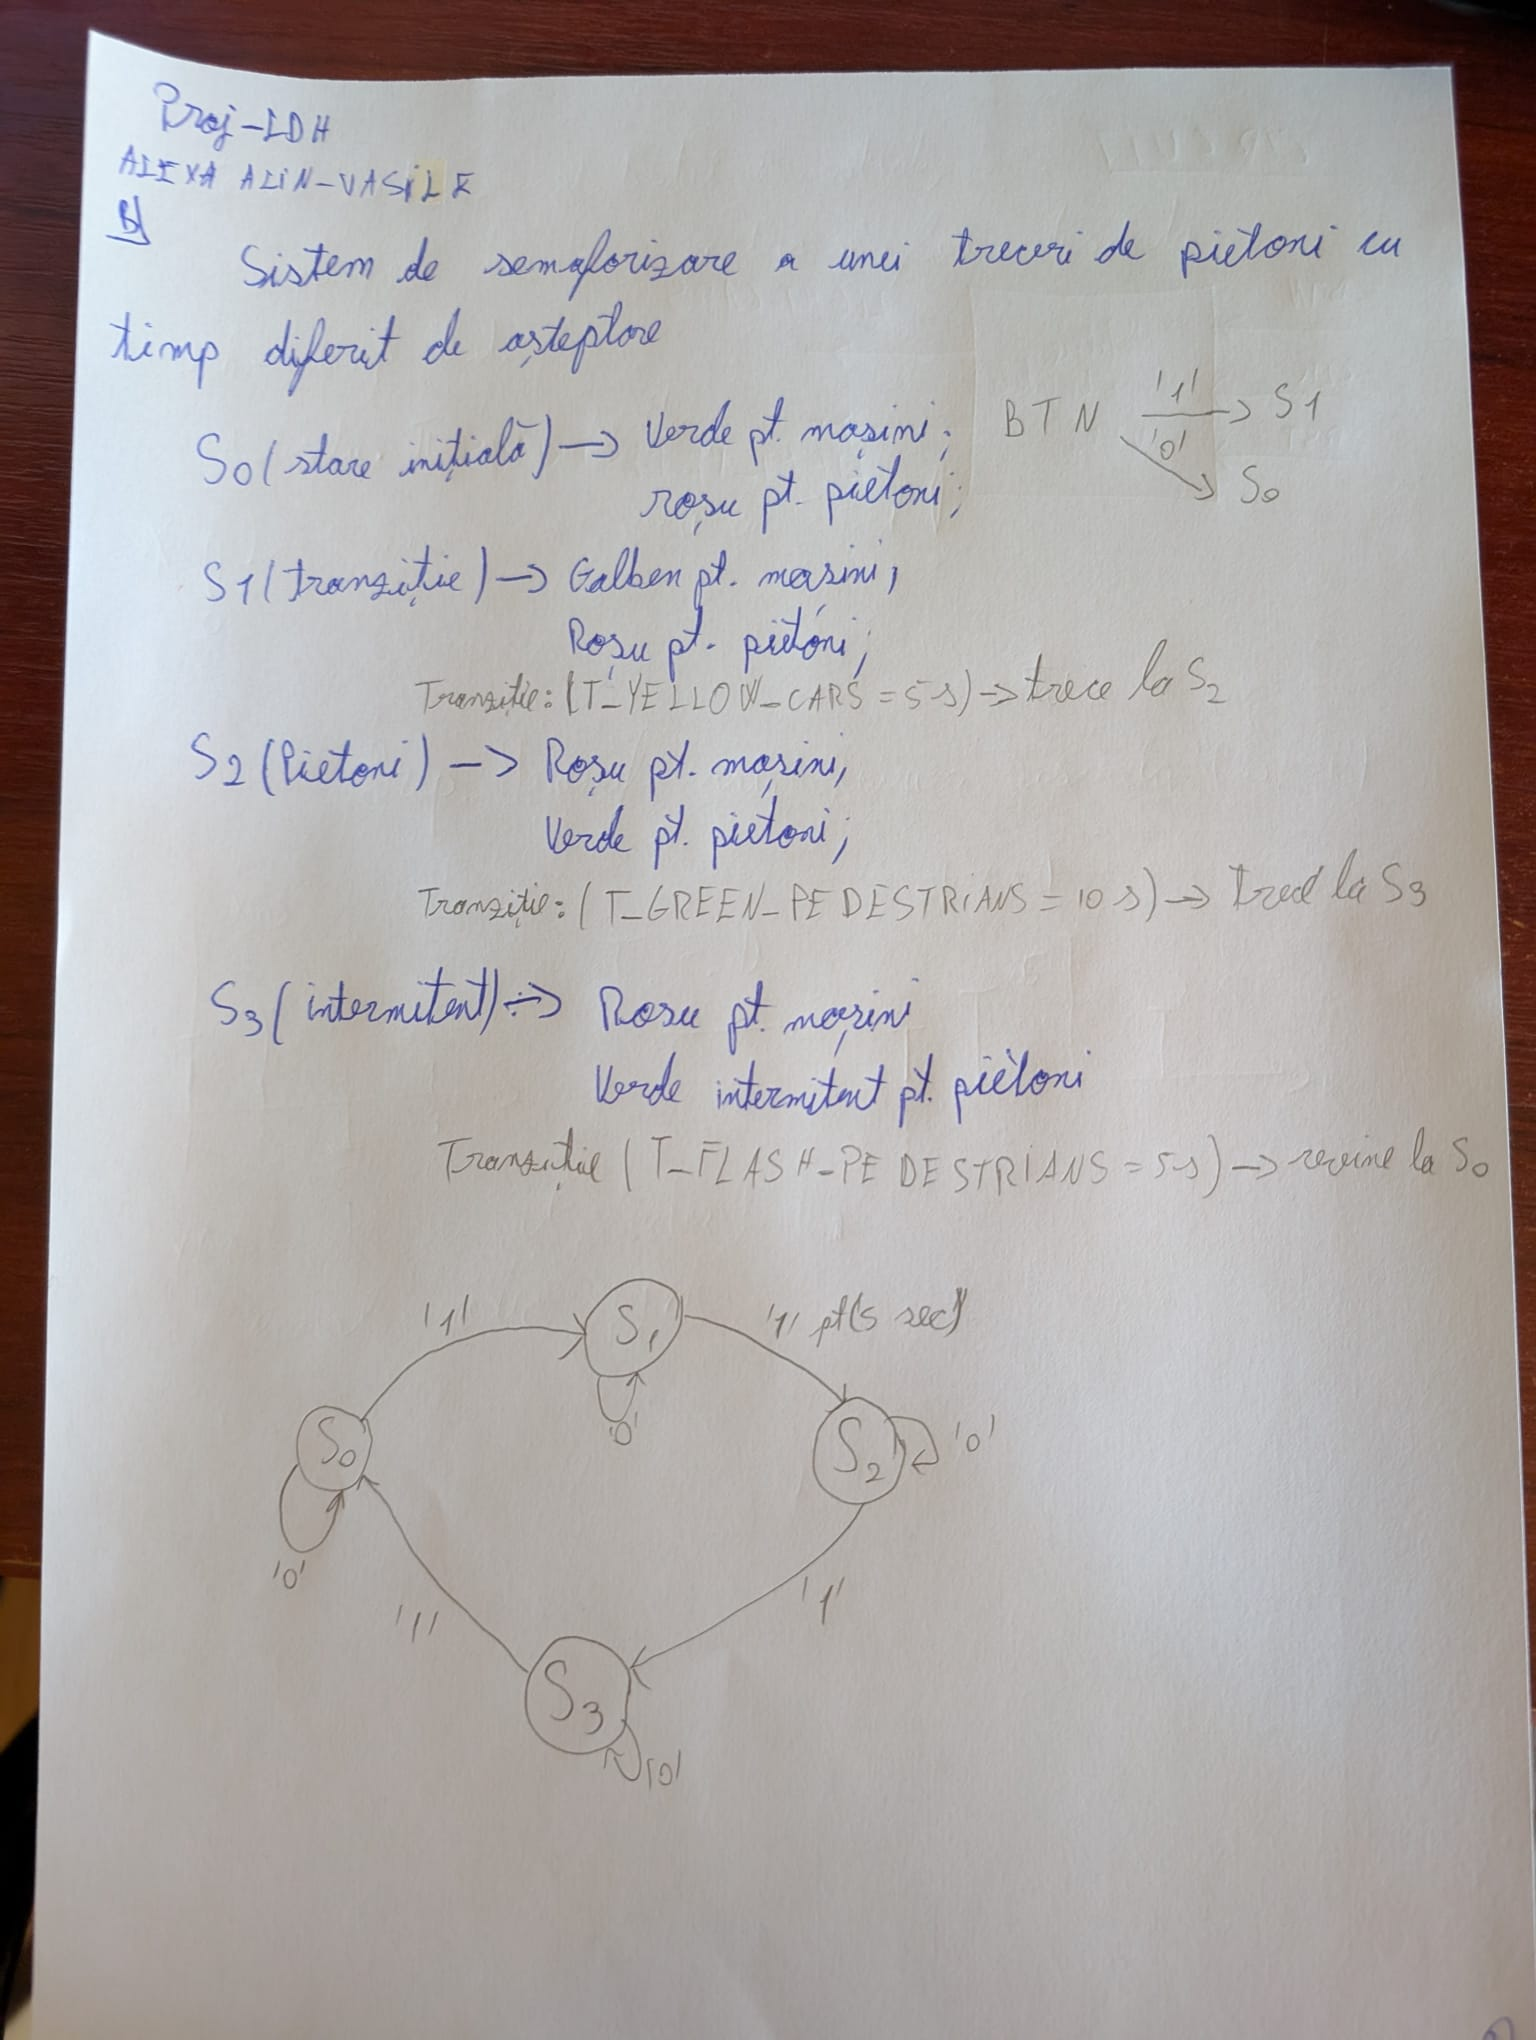 Proj-LDH
ALEXA ALIN-VASILE
B)
Sistem de semaforizare a unei treceri de pietoni cu
timp diferit de așteptare
S0 (stare inițială) -> Verde pt. mașini;
roșu pt. pietoni;
BTN '1' -> S1
'0' -> S0
S1 (tranziție) -> Galben pt. mașini;
Roșu pt. pietoni;
Tranziție: (T_YELLOW_CARS = 5 s) -> trece la S2
S2 (Pietoni) -> Roșu pt. mașini;
Verde pt. pietoni;
Tranziție: (T_GREEN_PEDESTRIANS = 10 s) -> trece la S3
S3 (intermitent) -> Rosu pt. mașini
Verde intermitent pt. pietoni
Tranziție (T_FLASH_PEDESTRIANS = 5 s) -> revine la S0
'1' S1 '1' pt (5 sec)
'0'
S0 S2 '0'
'0'
'1' '1'
S3
'0'